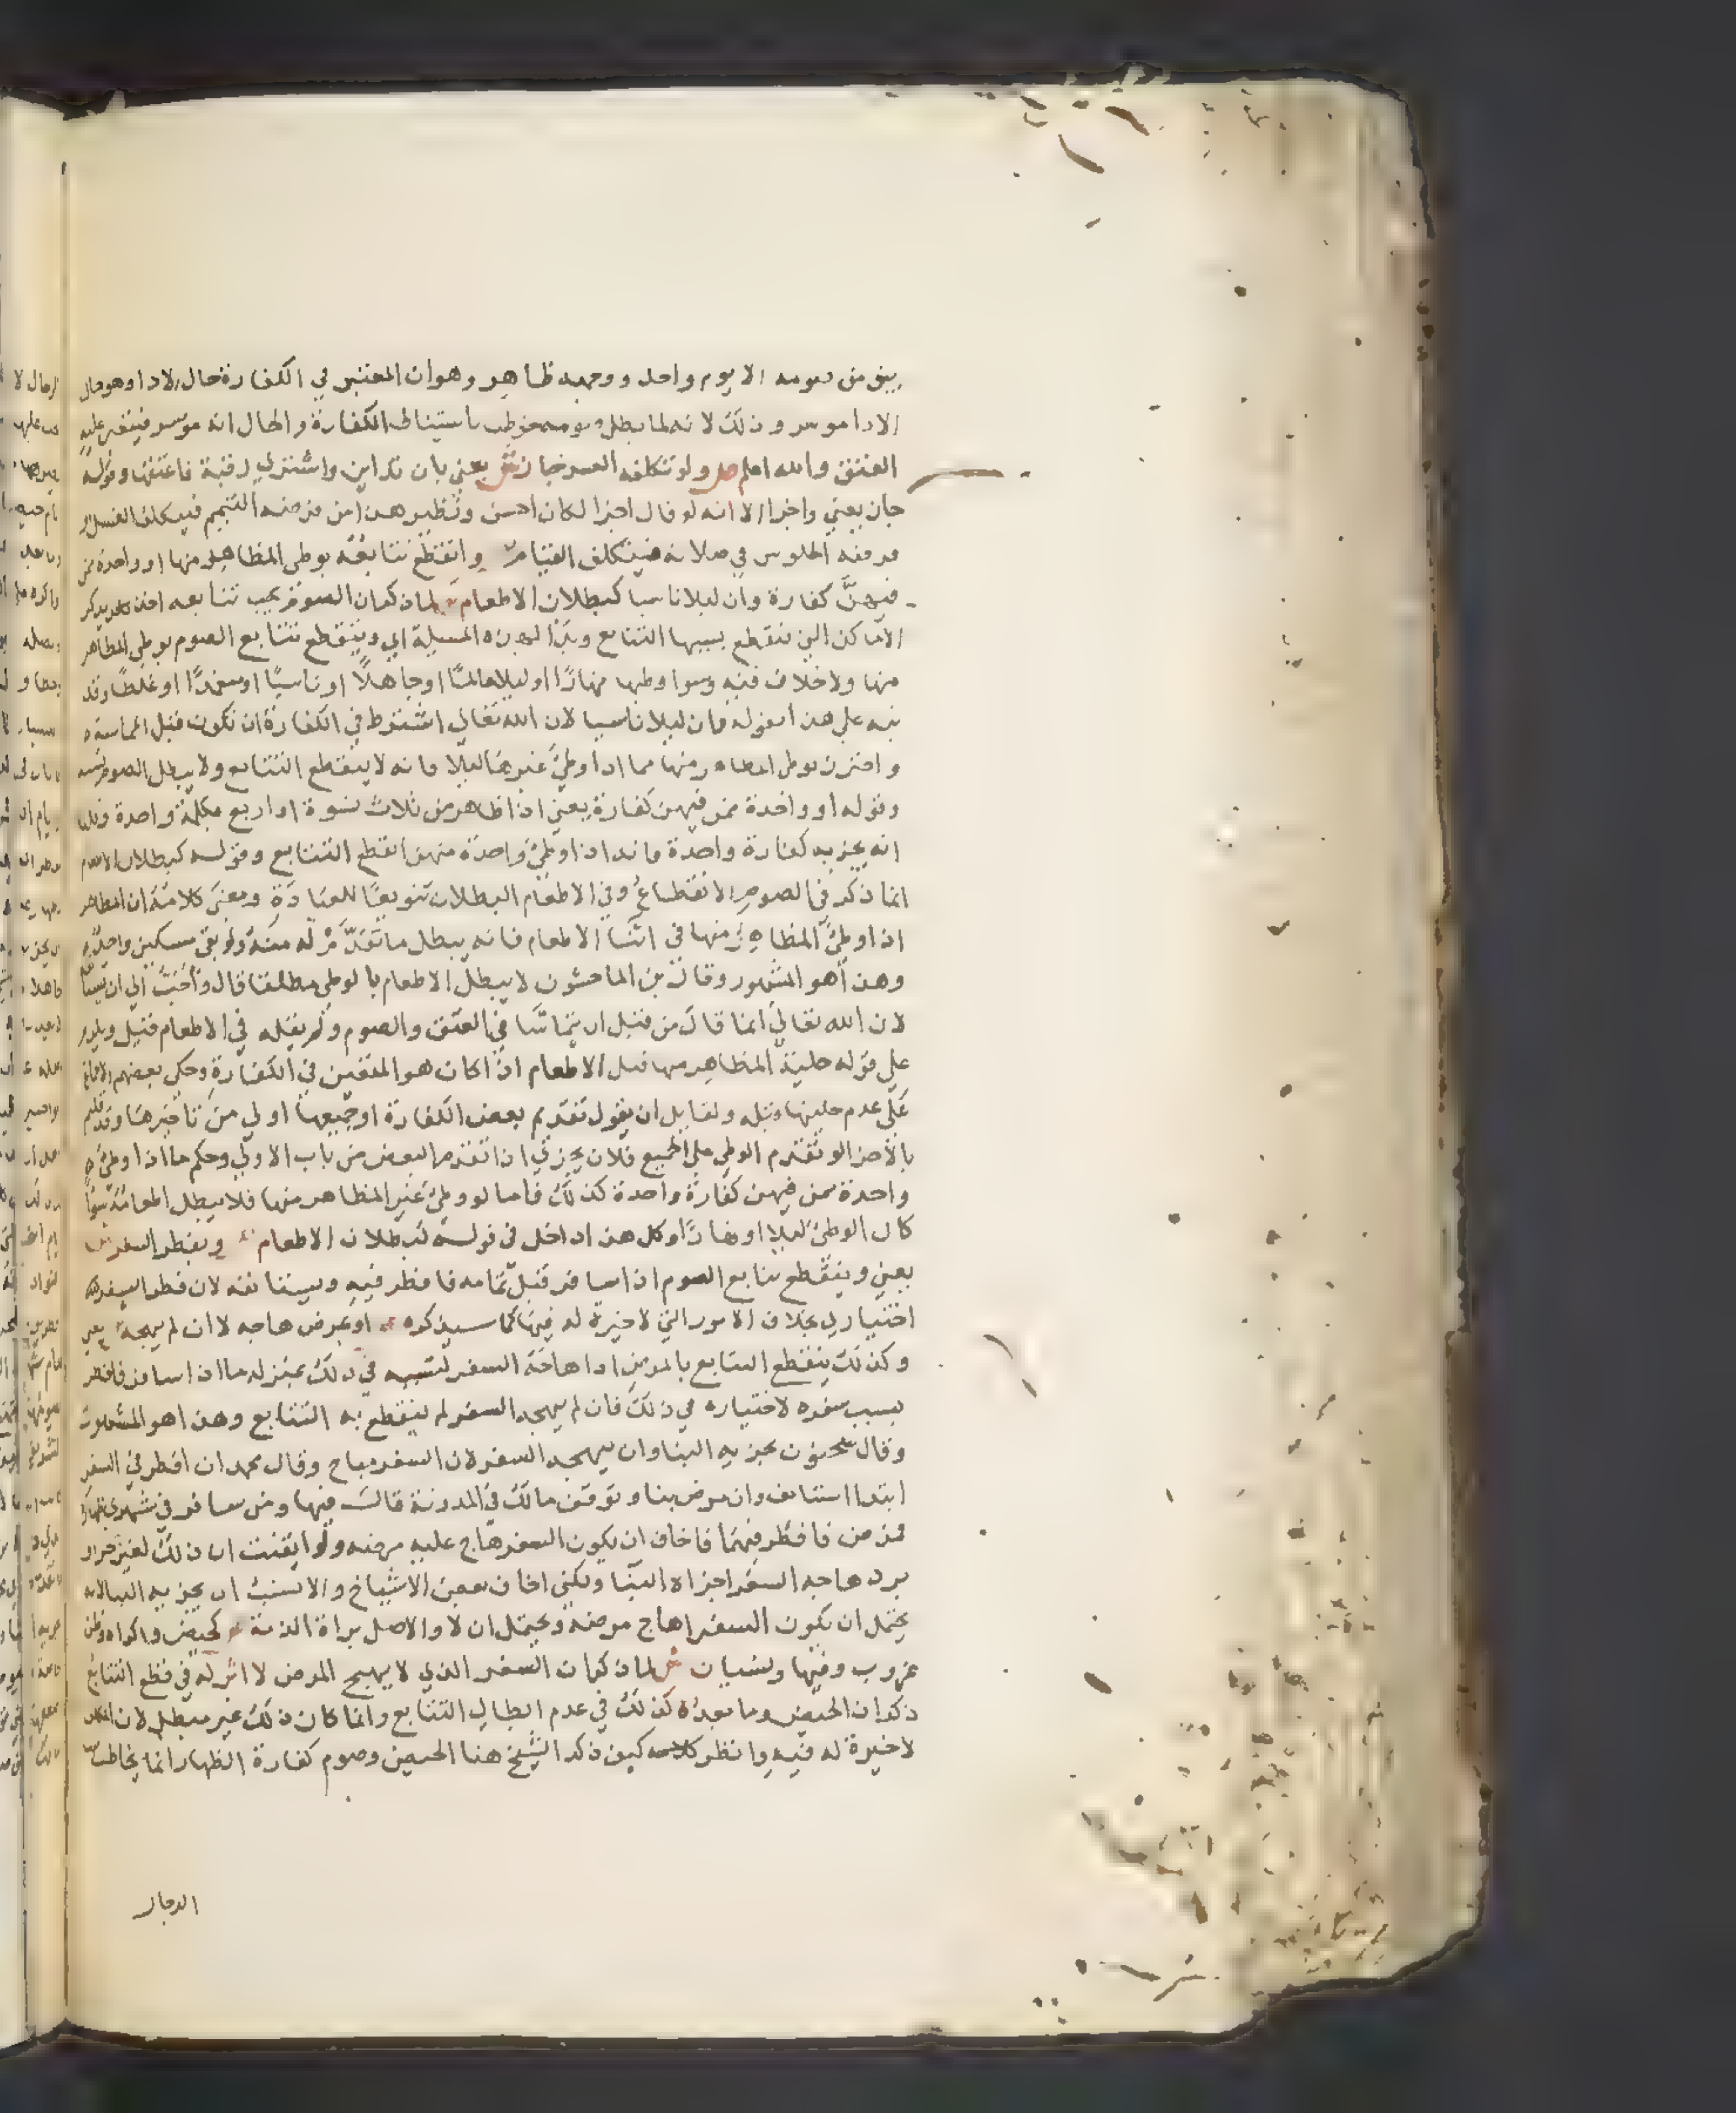 يبق من صومه الا يوم واحد ووجهه ظاهر وهو ان المعتبر في الكفارة حال الادا وهو حال
الادا موسر وذلك لانه لما بطل صومه خوطب باستيناف الكفارة والحال انه موسر فيتعين عليه
العتق والله اعلم ص ولو تكلفه المعسر جاز ش يعني بان تداين واشتري رقبة فاعتقها وقوله
جاز يعني واجزا الا انه لو قال اجزا لكان احسن ونظير هذا من فرضه التيمم فيتكلف الغسل او
فرضه الجلوس في صلاته فيتكلف القيام ص وانقطع تتابعه بوطي المظاهر منها او واحدة ممن
فيهن كفارة وان ليلا ناسيا كبطلان الاطعام ش لما ذكر ان الصوم يجب تتابعه اخذ يذكر
الاماكن التي ينقطع بسببها التتابع وبدا بهذه المسيلة اي وينقطع تتابع الصوم بوطي المظاهر
منها ولا خلاف فيه وسوا وطيها نهارًا او ليلا عالمًا او جاهلًا او ناسيًا او متعمدًا او غلطًا وقد
نبه علي هذا بقوله وان ليلا ناسيا لان الله تعالي اشترط في الكفارة ان تكون قبل المماسة
واحترز بوطي المظاهر منها مما اذا وطئ غيرها ليلا فانه لا ينقطع التتابع ولا يبطل الصوم
وقوله او واحدة ممن فيهن كفارة يعني اذا ظاهر من ثلاث نسوة او اربع بكلمة واحدة وقلنا
انه يجزيه كفارة واحدة فانه اذا وطئ واحدة منهن انقطع التتابع وقوله كبطلان الاطعام
انما ذكر في الصوم الانقطاع وفي الاطعام البطلان تنويعًا للعبادة ومعني كلامه ان المظاهر
اذا وطئ المظاهر منها في اثنا الاطعام فانه يبطل ما تقدم له منه ولو بقي مسكين واحد
وهذا هو المشهور وقال بن الماجشون لا يبطل الاطعام بالوطي مطلقا قال واحب الي ان يستأنف
لان الله تعالي انما قال من قبل ان يتماسا في العتق والصوم ولم يقله في الاطعام قيل ويلزم
علي قوله حلية المظاهر منها قبل الاطعام اذا كان هو المتعين في الكفارة وحكي بعضهم الاتفاق
علي عدم حليتها قبله ولقايل ان يقول تقديم بعض الكفارة او جميعها اولي من تاخيرها وقد قلتم
بالاجزا لو تقدم الوطي علي الجميع فلان يجزئ اذا تقدم البعض من باب الاولي وحكم ما اذا وطئ
واحدة ممن فيهن كفارة واحدة كذلك فاما لو وطئ غير المظاهر منها فلا يبطل اطعامه سوا
كان الوطئ ليلا او نهارًا وكل هذا داخل في قوله كبطلان الاطعام ص وبفطر السفر ش
يعني وينقطع تتابع الصوم اذا سافر قبل تمامه فافطر فيه ويستانفه لان فطر السفر
اختياري بخلاف الامور التي لا خيرة له فيها كما سيذكره ص او بمرض هاجه لا ان لم يهجه ش يعني
وكذلك ينقطع التتابع بالمرض اذا هاجه السفر لتسببه في ذلك بمنزلة ما اذا سافر فافطر
بسبب سفره لاختياره في ذلك فان لم يهجه السفر لم ينقطع به التتابع وهذا هو المشهور
وقال سحنون يجزيه البنا وان يهجه السفر لان السفر مباح وقال محمد ان افطر في السفر
ابتدا استانف وان مرض بنا وتوقف مالك في المدونة قال فيها ومن سافر في شهري ظهاره
فمرض فافطر فيهما فاخاف ان يكون السفر هاج عليه مرضه ولو ايقنت ان ذلك لغير حر او
برد هاجه السفر اجزاه البنا ولكني اخاف بعض الاشياخ والانسب ان يجزيه البنا لانه
يحتمل ان يكون السفر اهاج مرضه ويحتمل ان لا والاصل براة الذمة ص كحيض واكراه وظن
غروب وفيها ونسيان ش لما ذكر ان السفر الذي لا يهيج المرض لا اثر له في قطع التتابع
ذكر ان الحيض وما بعده كذلك في عدم ابطال التتابع وانما كان ذلك غير مبطل لان
لا خيرة له فيه وانظر كلامه كيف ذكر الشيخ هنا الحيض وصوم كفارة الظهار انما يخاطب به
الرجال